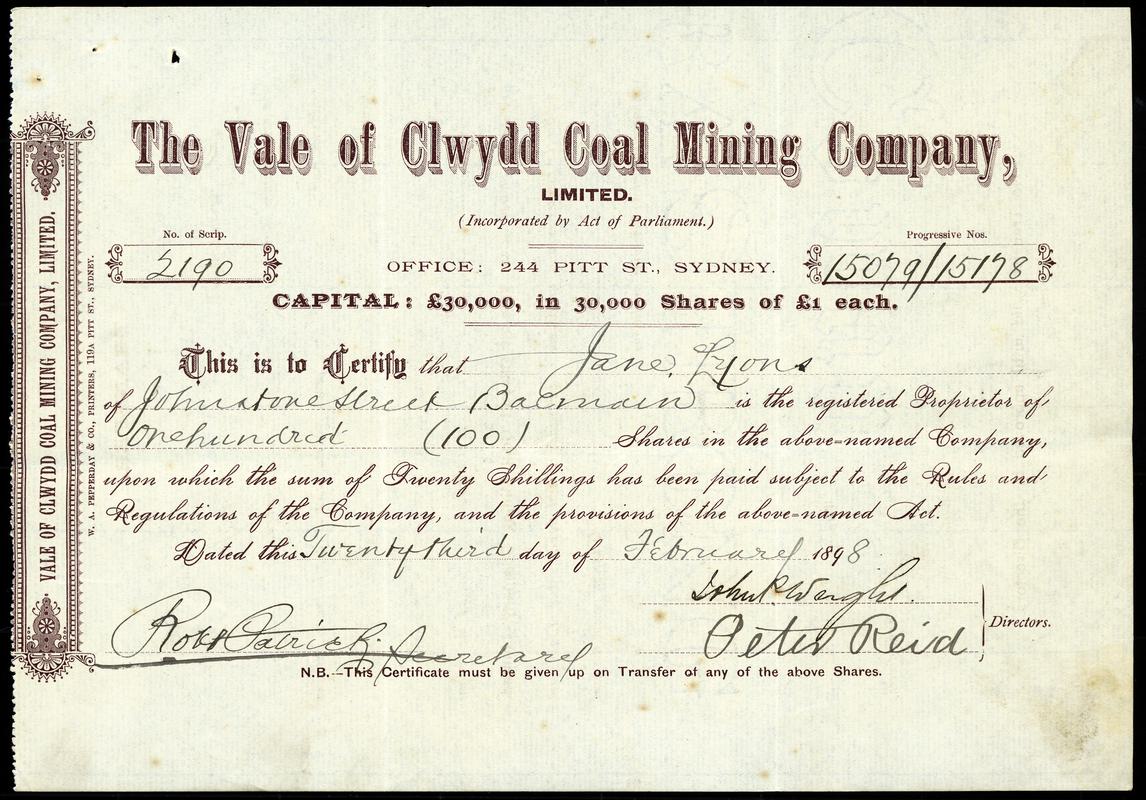 The Vale of Clwydd Coal Mining Company,
LIMITED.
(Incorporated by Act of Parliament.)
No. of Scrip.
2190
OFFICE: 244 PITT ST., SYDNEY.
Progressive Nos.
15079/15178
CAPITAL: £30,000, in 30,000 Shares of £1 each.
This is to Certify that Jane Lyons
of Johnstone Street Balmain is the registered Proprietor of
One hundred (100) Shares in the above-named Company,
upon which the sum of Twenty Shillings has been paid subject to the Rules and
Regulations of the Company, and the provisions of the above-named Act.
Dated this Twenty third day of February 1898
John P. Wright.
Robt Patrick
Secretary
Peter Reid
Directors.
N.B.—This Certificate must be given up on Transfer of any of the above Shares.
VALE OF CLWYDD COAL MINING COMPANY, LIMITED.
W. A. PEPPERDAY & CO., PRINTERS, 119A PITT ST., SYDNEY.